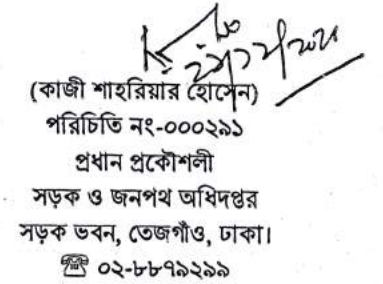 (কাজী শাহরিয়ার হোসেন)
পরিচিতি নং-০০০২৯১
প্রধান প্রকৌশলী
সড়ক ও জনপথ অধিদপ্তর
সড়ক ভবন, তেজগাঁও, ঢাকা।
☎ ০২-৮৮৭৯২৯৯